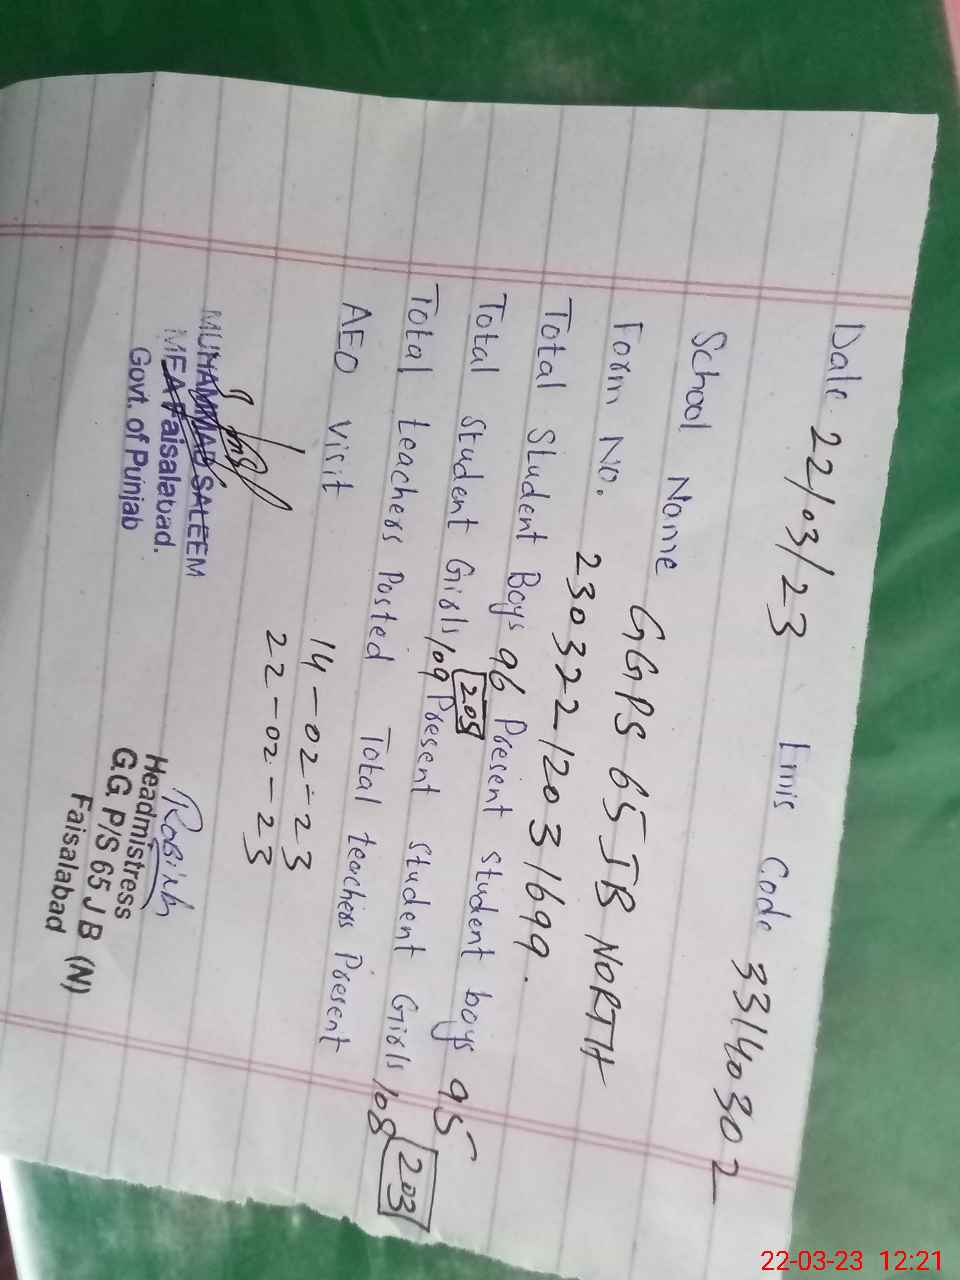 Date 22/03/23 Emis Code 33140302
School Name GGPS 65 JB NORTH
Form No. 230322 1203 1699.
Total Student Boys 96 Present student boys 95
205
203
Total Student Girls 109 Present student Girls 108
Total teachers Posted Total teachers Present
AEO visit 14-02-23
22-02-23
MUHAMMAD SALEEM
MEA Faisalabad.
Govt. of Punjab
Robina
Headmistress
GG P/S 65 J B (N)
Faisalabad
22-03-23 12:21